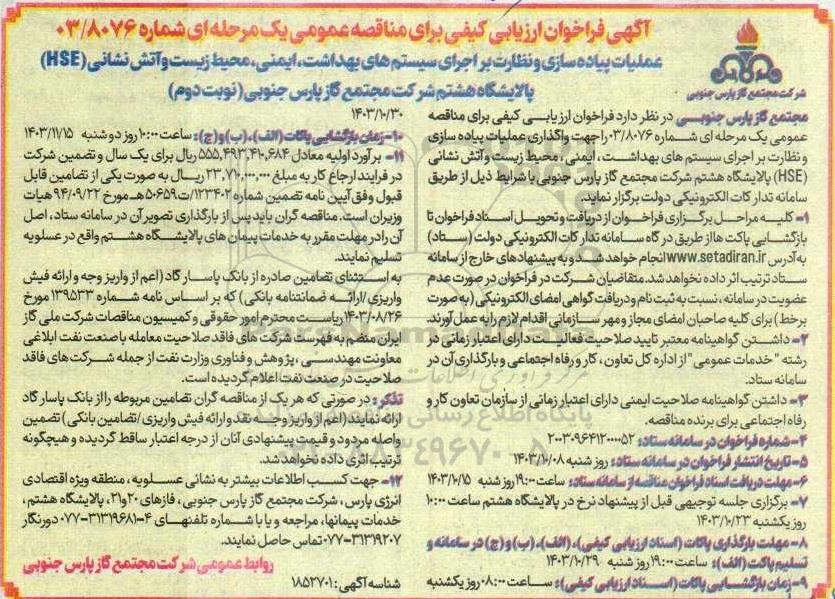 آگهی فراخوان ارزیابی کیفی برای مناقصه عمومی یک مرحله ای شماره ۰۳/۸۰۷۶
عملیات پیاده سازی و نظارت بر اجرای سیستم های بهداشت، ایمنی، محیط زیست و آتش نشانی (HSE)
پالایشگاه هشتم شرکت مجتمع گاز پارس جنوبی (نوبت دوم)
شرکت مجتمع گاز پارس جنوبی
مجتمع گاز پارس جنوبی در نظر دارد فراخوان ارزیابی کیفی برای مناقصه
عمومی یک مرحله ای شماره ۰۳/۸۰۷۶ را جهت واگذاری عملیات پیاده سازی
و نظارت بر اجرای سیستم های بهداشت، ایمنی، محیط زیست و آتش نشانی
(HSE) پالایشگاه هشتم شرکت مجتمع گاز پارس جنوبی با شرایط ذیل از طریق
سامانه تدارکات الکترونیکی دولت برگزار نماید.
۱- کلیه مراحل برگزاری فراخوان از دریافت و تحویل اسناد فراخوان تا
بازگشایی پاکت ها از طریق درگاه سامانه تدارکات الکترونیکی دولت (ستاد)
به آدرس www.setadiran.ir انجام خواهد شد و به پیشنهادهای خارج از سامانه
ستاد ترتیب اثر داده نخواهد شد. متقاضیان شرکت در فراخوان در صورت عدم
عضویت در سامانه، نسبت به ثبت نام و دریافت گواهی امضای الکترونیکی (به صورت
برخط) برای کلیه صاحبان امضای مجاز و مهر سازمانی اقدام لازم را به عمل آورند.
۲- داشتن گواهینامه معتبر تایید صلاحیت فعالیت دارای اعتبار زمانی در
رشته "خدمات عمومی" از اداره کل تعاون، کار و رفاه اجتماعی و بارگذاری آن در
سامانه ستاد.
۳- داشتن گواهینامه صلاحیت ایمنی دارای اعتبار زمانی از سازمان تعاون کار و
رفاه اجتماعی برای برنده مناقصه.
۴- شماره فراخوان در سامانه ستاد: ۲۰۰۳۰۹۶۴۱۲۰۰۰۰۵۲
۵- تاریخ انتشار فراخوان در سامانه ستاد: روز شنبه ۱۴۰۳/۱۰/۰۸
۶- مهلت دریافت اسناد فراخوان مناقصه از سامانه ستاد: ساعت ۱۹:۰۰ روز شنبه ۱۴۰۳/۱۰/۱۵
۷- برگزاری جلسه توجیهی قبل از پیشنهاد نرخ در پالایشگاه هشتم ساعت ۱۰:۰۰
روز یکشنبه ۱۴۰۳/۱۰/۲۳
۸- مهلت بارگذاری پاکات (اسناد ارزیابی کیفی)، (الف)، (ب) و (ج) در سامانه و
تسلیم پاکت (الف): ساعت ۱۹:۰۰ روز شنبه ۱۴۰۳/۱۰/۲۹
۹- زمان بازگشایی پاکات (اسناد ارزیابی کیفی): ساعت ۰۸:۰۰ روز یکشنبه
۱۴۰۳/۱۰/۳۰
۱۰- زمان بازگشایی پاکات (الف)، (ب) و (ج): ساعت ۱۰:۰۰ روز دوشنبه ۱۴۰۳/۱۱/۱۵
۱۱- برآورد اولیه معادل ۵۵۵,۴۹۳,۴۱۰,۶۸۴ ریال برای یک سال و تضمین شرکت
در فرایند ارجاع کار به مبلغ ۲۳,۷۱۰,۰۰۰,۰۰۰ ریال به صورت یکی از تضامین قابل
قبول وفق آیین نامه تضمین شماره ۱۲۳۴۰۲/ت۵۰۶۵۹هـ مورخ ۹۴/۰۹/۲۲ هیات
وزیران است. مناقصه گران باید پس از بارگذاری تصویر آن در سامانه ستاد، اصل
آن را در مهلت مقرر به خدمات پیمان های پالایشگاه هشتم واقع در عسلویه
تسلیم نمایند.
به استثنای تضامین صادره از بانک پاسارگاد (اعم از واریز وجه و ارائه فیش
واریزی /ارائه ضمانتنامه بانکی) که بر اساس نامه شماره ۱۳۹۵۳۳ مورخ
۱۴۰۳/۰۸/۲۶ ریاست محترم امور حقوقی و کمیسیون مناقصات شرکت ملی گاز
ایران منضم به فهرست شرکت های فاقد صلاحیت معامله با صنعت نفت ابلاغی
معاونت مهندسی، پژوهش و فناوری وزارت نفت از جمله شرکت های فاقد
صلاحیت در صنعت نفت اعلام گردیده است.
تذکر: در صورتی که هر یک از مناقصه گران تضامین مربوطه را از بانک پاسارگاد
ارائه نمایند (اعم از واریز وجه نقد و ارائه فیش واریزی /تضامین بانکی) تضمین
واصله مردود و قیمت پیشنهادی آنان از درجه اعتبار ساقط گردیده و هیچگونه
ترتیب اثری داده نخواهد شد.
۱۲- جهت کسب اطلاعات بیشتر به نشانی عسلویه، منطقه ویژه اقتصادی
انرژی پارس، شرکت مجتمع گاز پارس جنوبی، فازهای ۲۰ و ۲۱، پالایشگاه هشتم،
خدمات پیمانها، مراجعه و یا با شماره تلفنهای ۴-۰۷۷۳۱۳۱۹۶۸۱ دورنگار
۰۷۷-۳۱۳۱۹۲۰۷ تماس حاصل نمایند.
روابط عمومی شرکت مجتمع گاز پارس جنوبی
شناسه آگهی: ۱۸۵۲۷۰۱